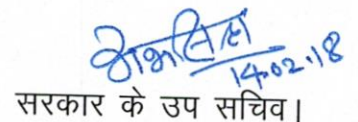 14.02.18
सरकार के उप सचिव।